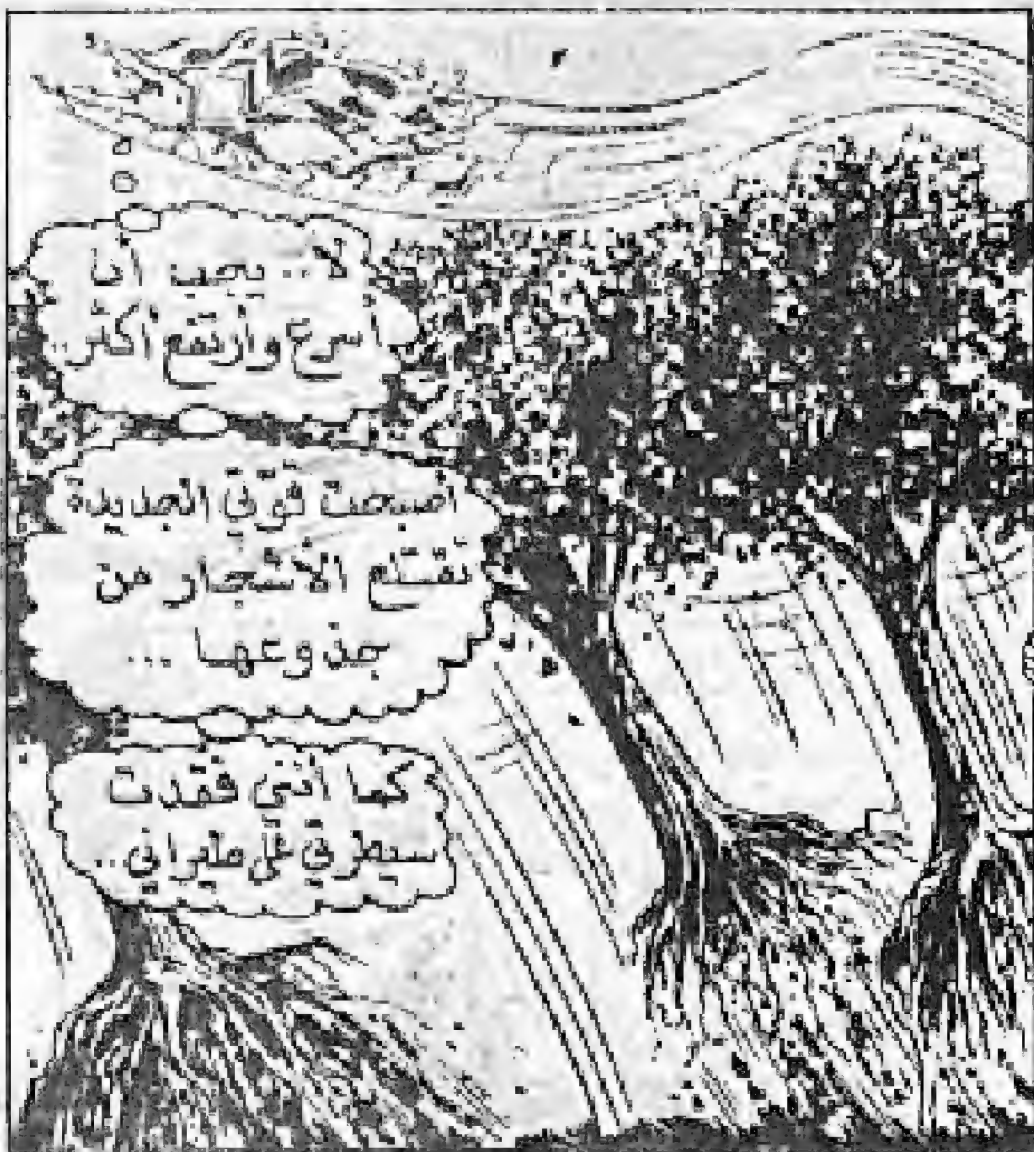 لا .. يجب أن
أسرع وأرتفع أكثر ..
أصبحت قوتي الجديدة
تقتلع الأشجار من
جذوعها ...
كما أنني فقدت
سيطرتي على طيراني ..